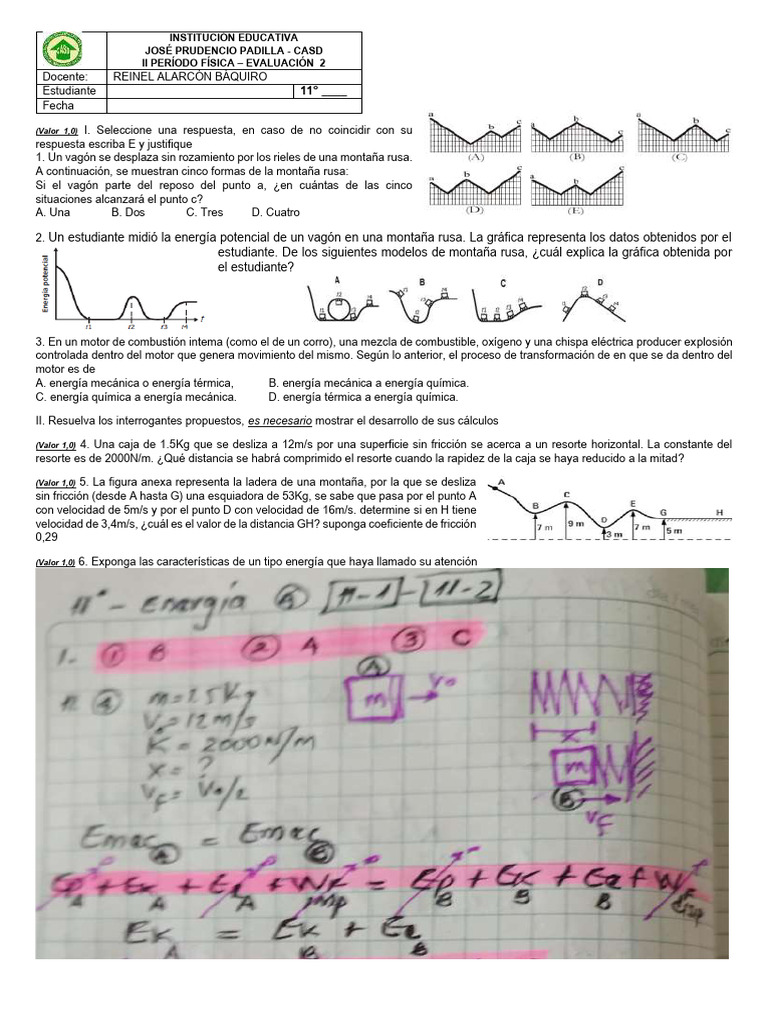 INSTITUCION EDUCATIVA
JOSÉ PRUDENCIO PADILLA - CASD
II PERÍODO FÍSICA – EVALUACIÓN 2
Docente: REINEL ALARCÓN BÁQUIRO
Estudiante 11° ____
Fecha
(Valor 1,0) I. Seleccione una respuesta, en caso de no coincidir con su
respuesta escriba E y justifique
1. Un vagón se desplaza sin rozamiento por los rieles de una montaña rusa.
A continuación, se muestran cinco formas de la montaña rusa:
Si el vagón parte del reposo del punto a, ¿en cuántas de las cinco
situaciones alcanzará el punto c?
A. Una B. Dos C. Tres D. Cuatro
a b c
(A)
a b c
(B)
a b c
(C)
a b c
(D)
a b c
(E)
2. Un estudiante midió la energía potencial de un vagón en una montaña rusa. La gráfica representa los datos obtenidos por el
estudiante. De los siguientes modelos de montaña rusa, ¿cuál explica la gráfica obtenida por
el estudiante?
Energía potencial
t1 t2 t3 t4 t
A B C D
3. En un motor de combustión interna (como el de un corro), una mezcla de combustible, oxígeno y una chispa eléctrica producer explosión
controlada dentro del motor que genera movimiento del mismo. Según lo anterior, el proceso de transformación de en que se da dentro del
motor es de
A. energía mecánica o energía térmica, B. energía mecánica a energía química.
C. energía química a energía mecánica. D. energía térmica a energía química.
II. Resuelva los interrogantes propuestos, es necesario mostrar el desarrollo de sus cálculos
(Valor 1,0) 4. Una caja de 1.5Kg que se desliza a 12m/s por una superficie sin fricción se acerca a un resorte horizontal. La constante del
resorte es de 2000N/m. ¿Qué distancia se habrá comprimido el resorte cuando la rapidez de la caja se haya reducido a la mitad?
(Valor 1,0) 5. La figura anexa representa la ladera de una montaña, por la que se desliza
sin fricción (desde A hasta G) una esquiadora de 53Kg, se sabe que pasa por el punto A
con velocidad de 5m/s y por el punto D con velocidad de 16m/s. determine si en H tiene
velocidad de 3,4m/s, ¿cuál es el valor de la distancia GH? suponga coeficiente de fricción
0,29
A B C D E G H
7 m 9 m 3 m 7 m 5 m
(Valor 1,0) 6. Exponga las características de un tipo energía que haya llamado su atención
11° - Energía B [11-1] - [11-2]
I. - ① B ② A ③ C
II. ④ m = 1.5Kg
V₀ = 12m/s
K = 2000N/m
x = ?
VF = V₀/2
A
m V₀
x
m
B VF
Emec A = Emec B
Ep A + Ek A + Ee A + WF imp = Ep B + Ek B + Ee B + WF disp
Ek A = Ek B + Ee B